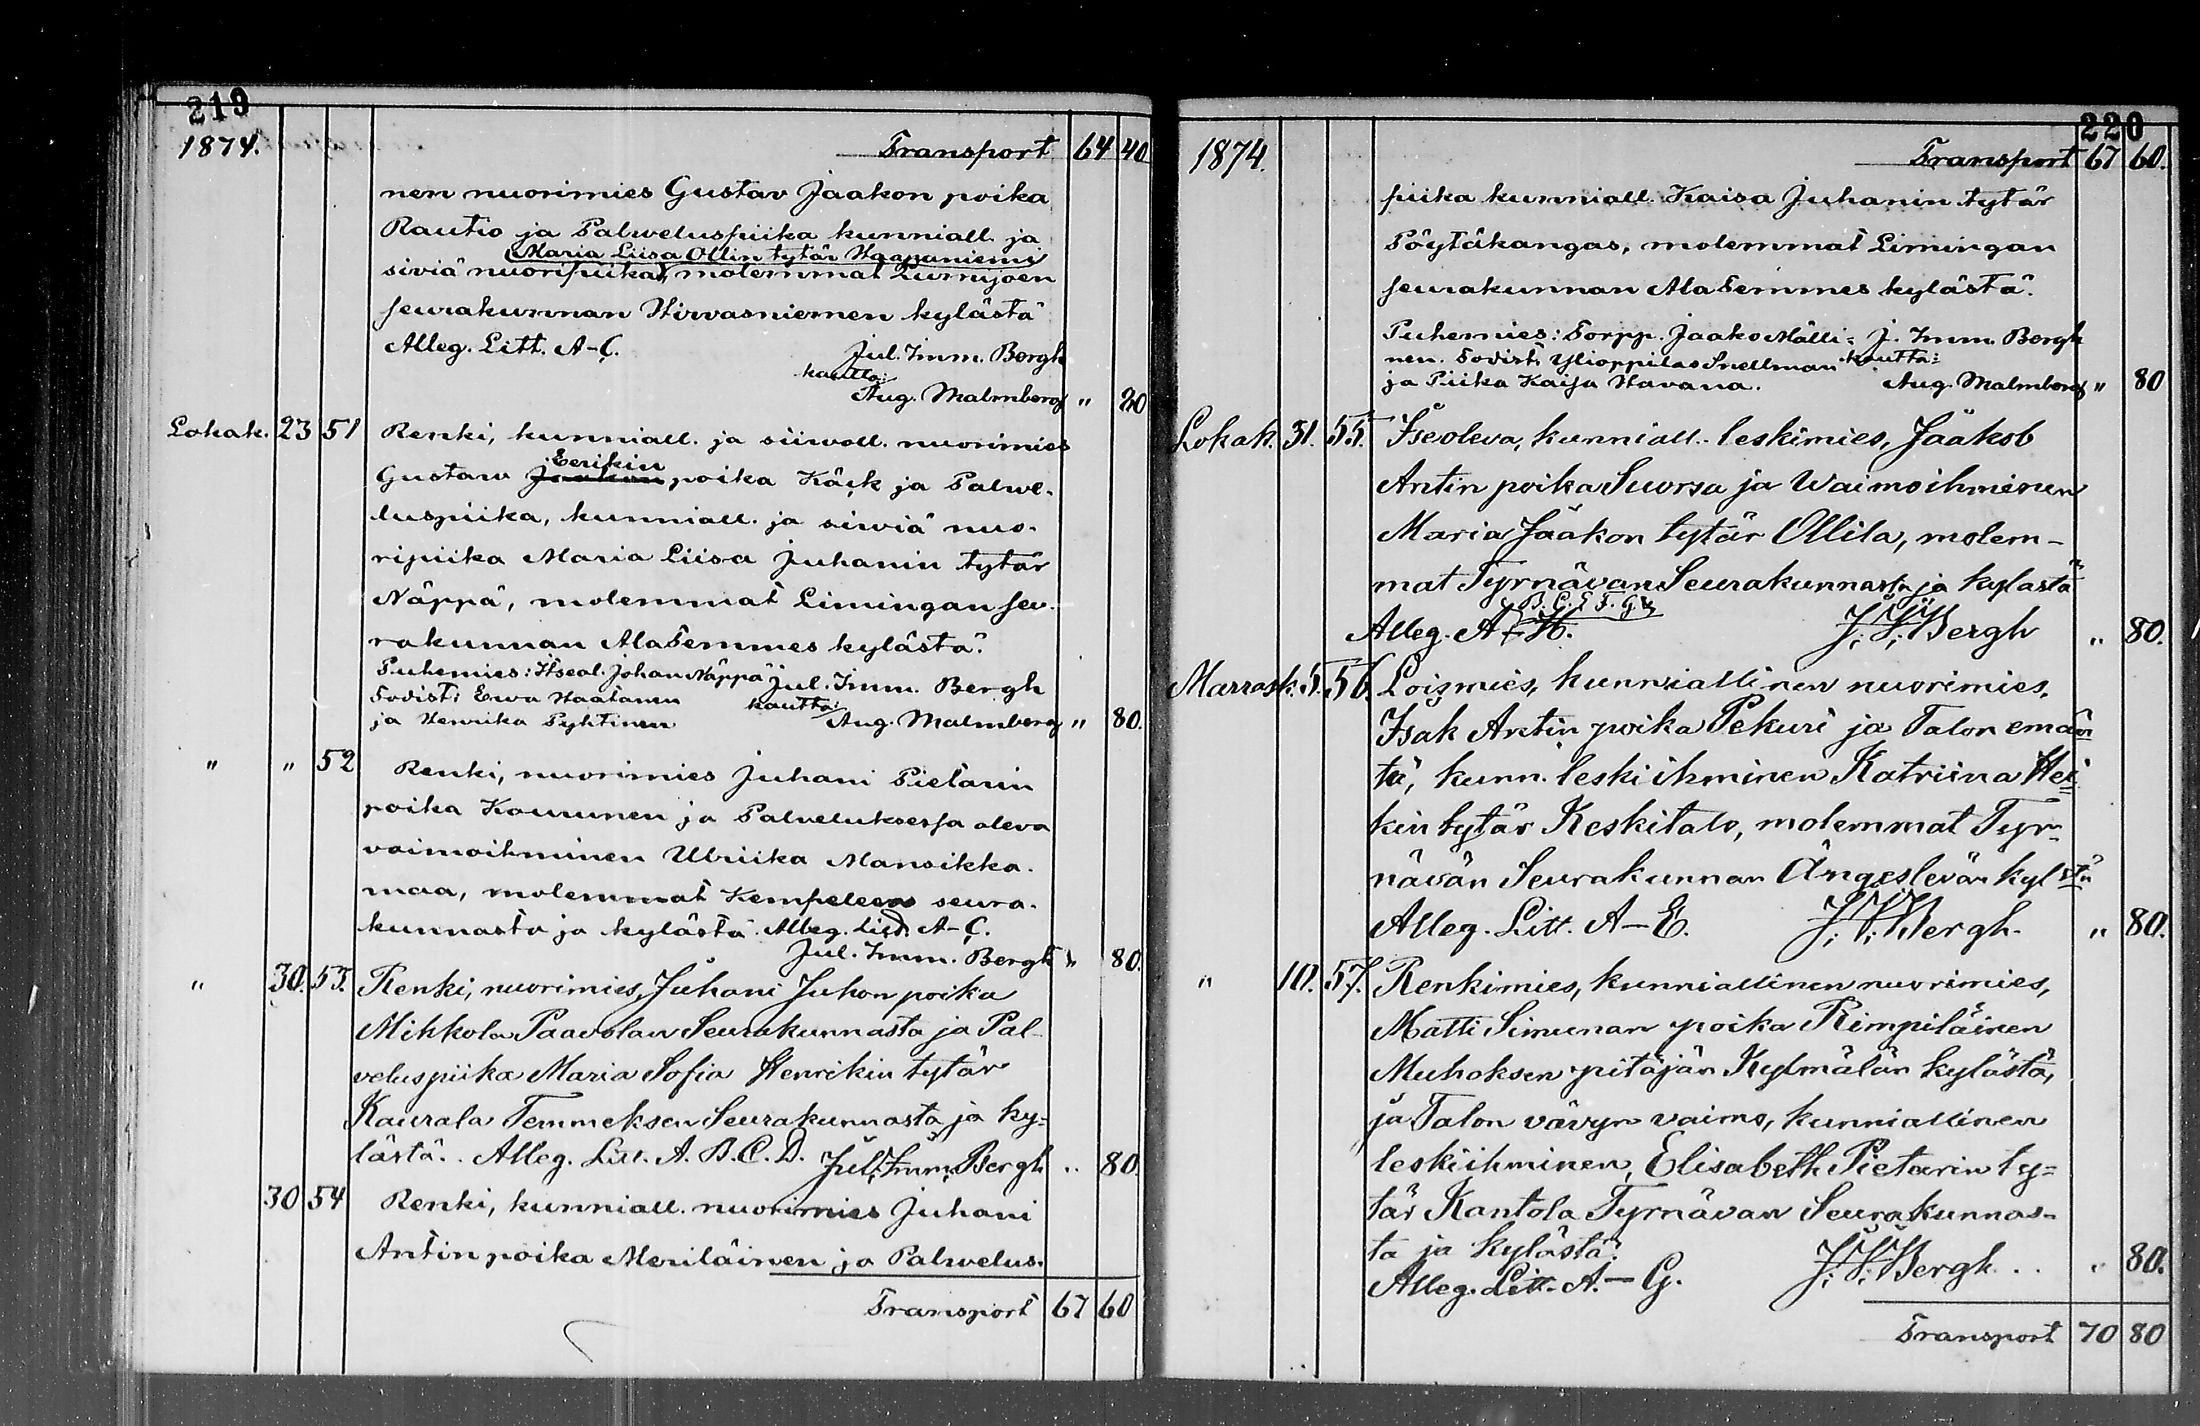 219
1874. Transport 64 40
nen nuorimies Gustav Jaakon poika
Rautio ja Palweluspiika kunniall. ja
Maria Liisa Ollin tytär Haapaniemi
siviä nuoripiika, molemmat Lumijoen
seurakunnan Hirvasniemen kylästä
Alleg. Litt. A-C.
Jul. Imm. Bergh
kautta:
Aug. Malmberg " 80
Lokak. 23 51 Renki, kunniall. ja siiwoll. nuorimies
Eerikin
Gustaw Jaakon poika Käck ja Palwe-
luspiika, kunniall. ja siwiä nuo-
ripiika Maria Liisa Juhanin tytär
Näppä, molemmat Limingan seu-
rakunnan AlaTemmes kylästä.
Puhemies: Itseal. Johan Näppä Jul. Imm. Bergh
Todist: Ewa Haatanen kautta:
ja Henrika Pyhtinen Aug. Malmberg " 80.
" " 52 Renki, nuorimies Juhani Pietarin
poika Kouvunen ja Palveluksessa oleva
vaimoihminen Ulriika Mansikka-
maa, molemmat Kempeleen seura-
kunnasta ja kylästä. Alleg. Litt. A-C.
Jul. Imm. Bergh " 80.
" 30. 53. Renki, nuorimies, Juhani Juhon poika
Mihkola Paavolan Seurakunnasta ja Pal-
veluspiika Maria Sofia Henrikin tytär
Kaurala Temmeksen Seurakunnasta ja ky=
lästä. Alleg. Litt. A. B. C. D. Jul. Imm. Bergh " 80.
30 54 Renki, kunniall. nuorimies Juhani
Antin poika Meriläinen ja Palwelus-
Transport 67 60
220
1874. Transport 67 60.
piika kunniall. Kaisa Juhanin tytär
Pöytäkangas, molemmat Limingan
seurakunnan AlaTemmes kylästä.
Puhemies: Torpp. Jaako Mälli= J. Imm. Bergh
nen. Todist. Ylioppilas Snellman kautta:
ja Piika Kaisa Havana. Aug. Malmberg " 80
Lokak. 31. 55. Itseoleva, kunniall. leskimies, Jaakob
Antin poika Suorsa ja Waimoihminen
Maria Jaakon tytär Ollila, molem-
mat Tyrnävän Seurakunnasta ja kylästä
B. C. E F. G.
Alleg. A - H. J. I. Bergh " 80.
Marrask. 5. 56. Loismies, kunniallinen nuorimies,
Isak Antin poika Pekuri ja Talon emän
tä, kunn. leski ihminen Katriina Hei
kin tytär Keskitalo, molemmat Tyr-
nävän Seurakunnan Ängeslevän kylstä
Alleg. Litt. A-E. J. I. Bergh. " 80.
" 10. 57. Renkimies, kunniallinen nuorimies,
Matti Simunan poika Rimpiläinen
Muhoksen pitäjän Kylmälän kylästä,
ja Talon vävyn vaimo, kunniallinen
leskiihminen, Elisabeth Pietarin ty=
tär Kantola Tyrnävän Seurakunnas-
ta ja kylästä.
Alleg. Litt. A.-G. J. I. Bergh. . . " 80.
Transport 70 80